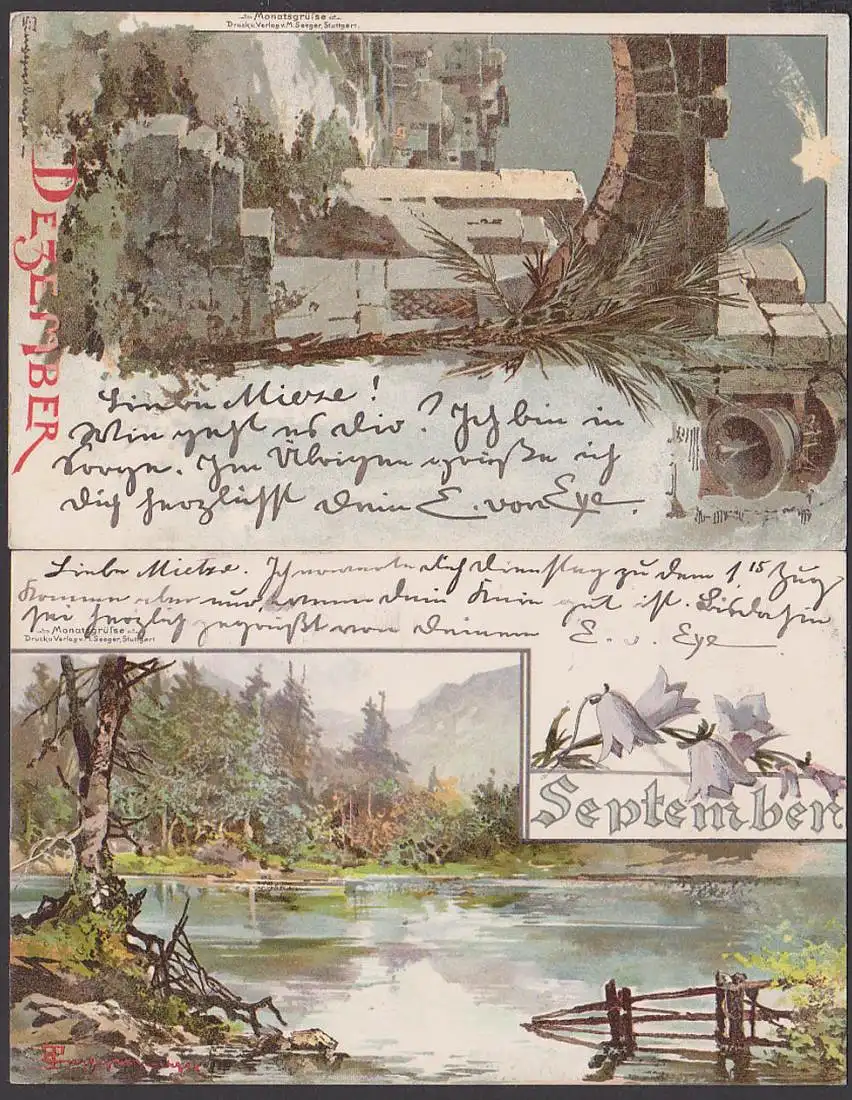 Monatsgrüße
Druck u. Verlag v. M. Seeger, Stuttgart.
DEZEMBER
Liebe Mieze!
Wie geht es dir? Ich bin in
Sorge. Im Übrigen grüße ich
Dich herzlichst Dein E. von Eye.
Liebe Mietze. Ich erwarte dich Dienstag zu dem 1 15 Zug
komme aber nur, wenn dein Knie gut ist. Bis dahin
sei herzlich gegrüßt von Deinem E. v. Eye
Monatsgrüße
Druck u. Verlag v. M. Seeger, Stuttgart
September